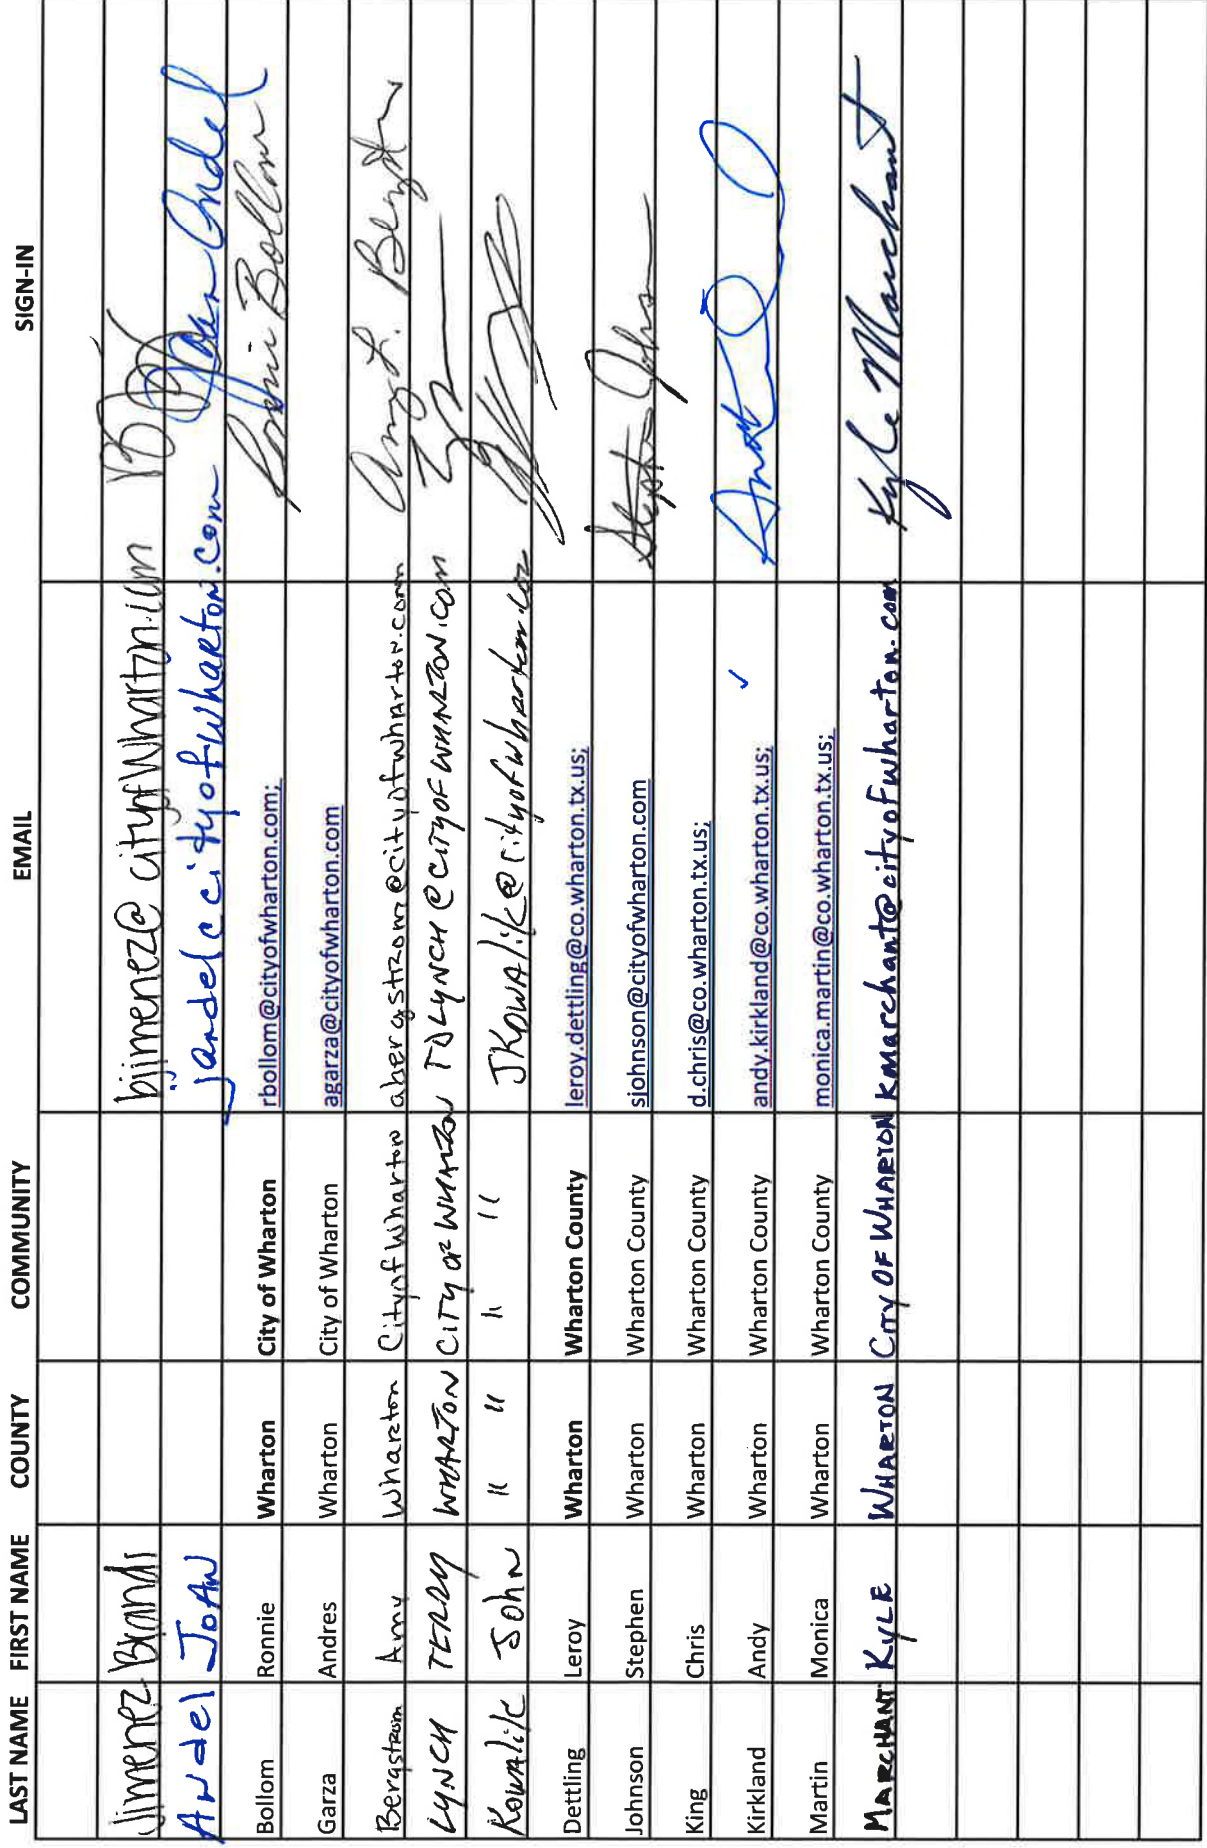 LAST NAME FIRST NAME COUNTY COMMUNITY EMAIL SIGN-IN
Jimenez Brandi bjimenez@cityofwharton.com
Andel JOAN jandel@cityofwharton.com Joan Andel
Bollom Ronnie Wharton City of Wharton rbollom@cityofwharton.com; Ronnie Bollom
Garza Andres Wharton City of Wharton agarza@cityofwharton.com
Bergstrom Amy Wharton City of Wharton abergstrom@cityofwharton.com Amy L. Bergstrom
LYNCH TERRY WHARTON CITY OF WHARTON TDLYNCH@CITYOFWHARTON.COM
Kowalik John " " " " JKOWAlik@cityofwharton.com
Dettling Leroy Wharton Wharton County leroy.dettling@co.wharton.tx.us;
Johnson Stephen Wharton Wharton County sjohnson@cityofwharton.com Stephen Johnson
King Chris Wharton Wharton County d.chris@co.wharton.tx.us;
Kirkland Andy Wharton Wharton County andy.kirkland@co.wharton.tx.us; ✓
Martin Monica Wharton Wharton County monica.martin@co.wharton.tx.us;
MARCHANT KYLE WHARTON CITY OF WHARTON kmarchant@cityofwharton.com Kyle Marchant